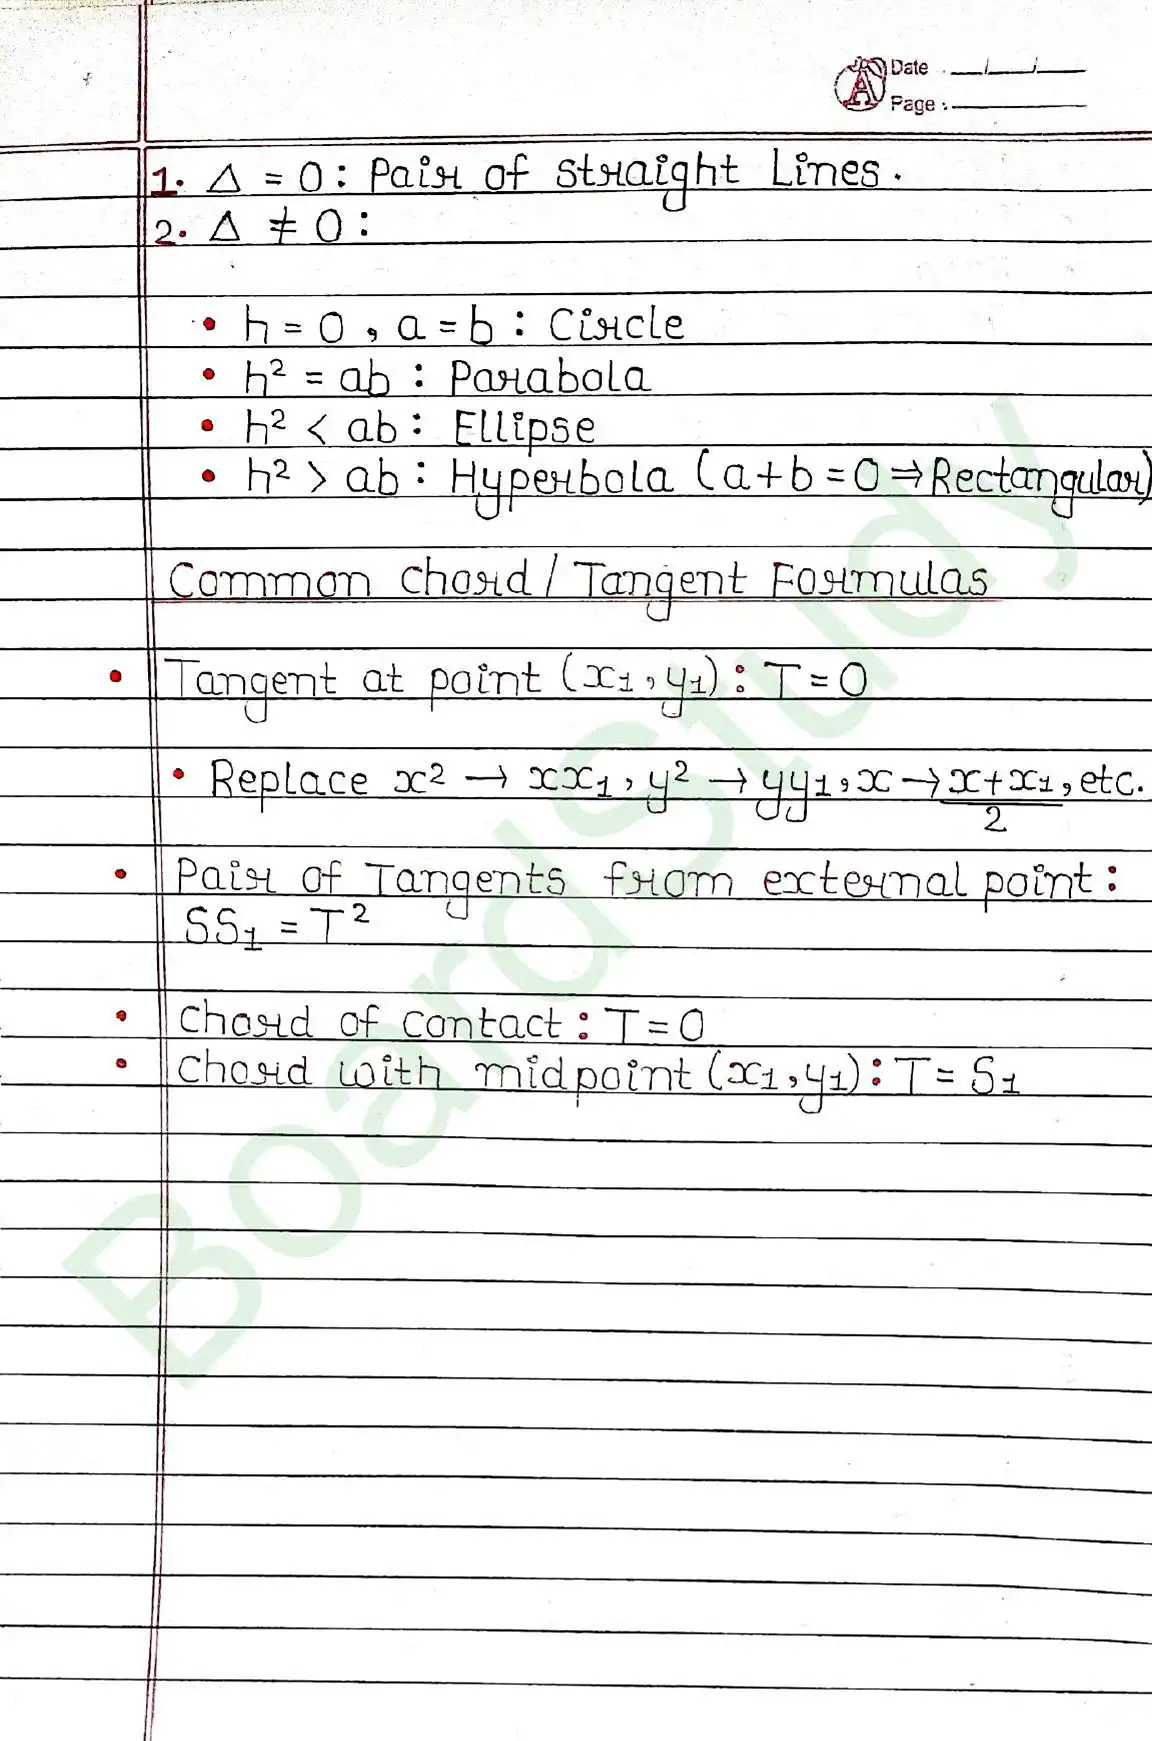 Date . __/__/__
Page :
1. Δ = 0 : Pair of Straight Lines.
2. Δ ≠ 0 :
• h = 0 , a = b : Circle
• h² = ab : Parabola
• h² < ab : Ellipse
• h² > ab : Hyperbola (a + b = 0 ⇒ Rectangular)
Common Chord / Tangent Formulas
• Tangent at point (x₁, y₁) : T = 0
• Replace x² → xx₁, y² → yy₁, x → (x + x₁)/2, etc.
• Pair of Tangents from external point :
SS₁ = T²
• Chord of Contact : T = 0
• Chord with midpoint (x₁, y₁) : T = S₁
BoardStudy